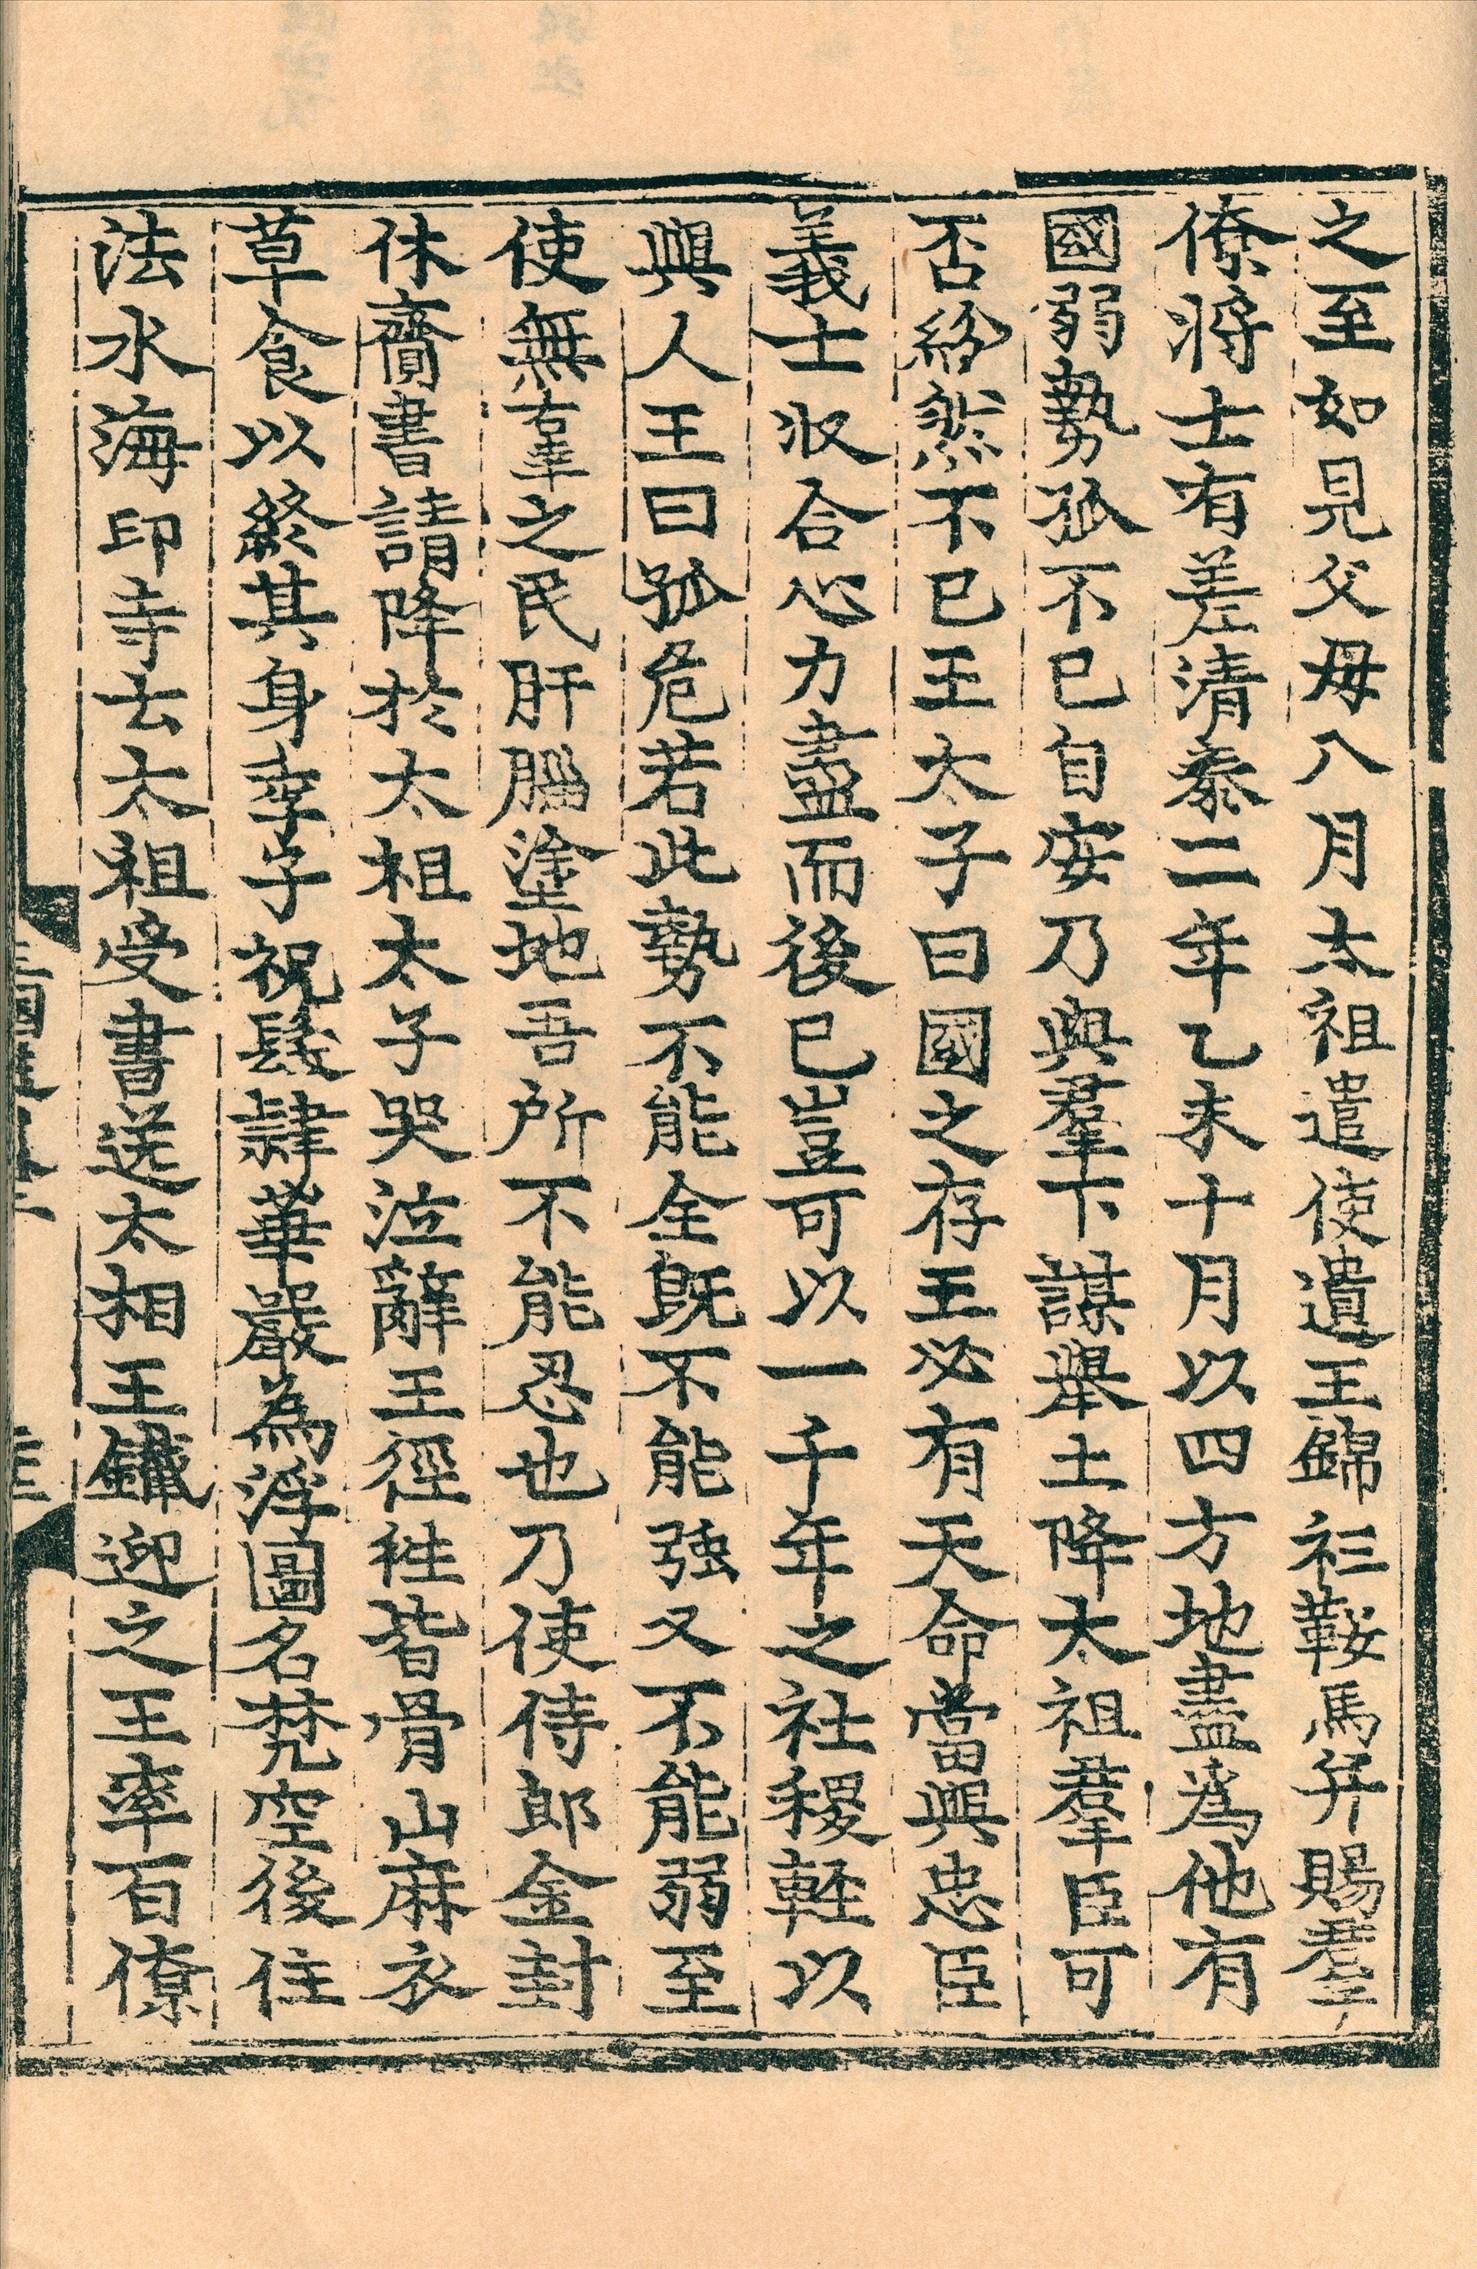 之至如見父母八月太祖遣使遺王錦衫鞍馬并賜羣
僚將士有差清泰二年乙未十月以四方地盡爲他有
國弱勢孤不已自安乃與羣下謀舉土降太祖羣臣可
否紛然不已王太子曰國之存亡必有天命當與忠臣
義士收合心力盡而後已豈可以一千年之社稷輕以
與人王曰孤危若此勢不能全旣不能强又不能弱至
使無辜之民肝腦塗地吾所不能忍也乃使侍郎金封
休齎書請降於太祖太子哭泣辭王徑徃皆骨山麻衣
草食以終其身季子祝髮隷華嚴為浮圖名梵空後住
法水海印寺云太祖受書送太相王鐵迎之王率百僚